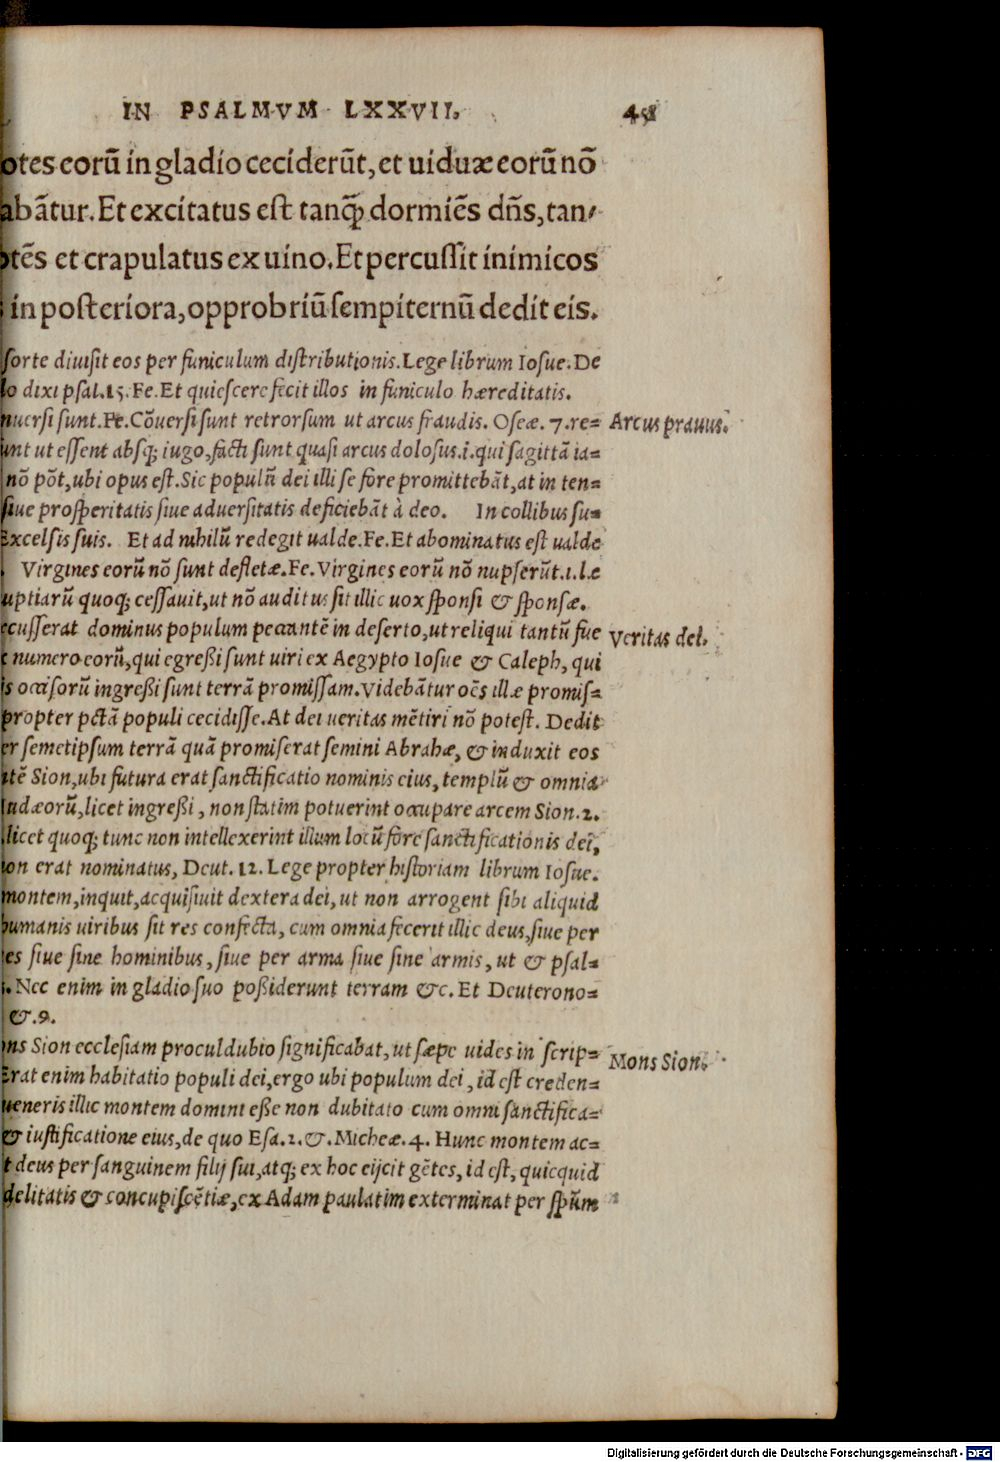 IN PSALMVM LXXVII.
otes eorũ in gladio ceciderũt, et uiduæ eorũ nõ
abãtur. Et excitatus est tanq̃ dormiẽs dñs, tan-
otẽs et crapulatus ex uino. Et percussit inimicos
in posteriora, opprobriũ sempiternũ dedit eis.
sorte diuisit eos per funiculum distributionis. Lege librum Iosue. De
lo dixi psal.15. Fe. Et quiescere fecit illos in funiculo hæreditatis.
nuersi sunt. Fe. Cõuersi sunt retrorsum ut arcus fraudis. Oseæ. 7. re=
Arcus prauus.
unt ut essent absq; iugo, facti sunt quasi arcus dolosus.i. qui sagittã ia=
nõ põt, ubi opus est. Sic populũ dei illi se fore promittebãt, at in ten=
siue prosperitatis siue aduersitatis deficiebãt à deo. In collibus su=
Excelsis suis. Et ad nihilũ redegit ualde. Fe. Et abominatus est ualde
. Virgines eorũ nõ sunt defletæ. Fe. Virgines eorũ nõ nupserũt.i. læ
uptiarũ quoq; cessauit, ut nõ auditus sit illic uox sponsi & sponsæ.
ecusserat dominus populum peccantẽ in deserto, ut reliqui tantũ fue
Veritas dei.
e numero eorũ, qui egreßi sunt uiri ex Aegypto Iosue & Caleph, qui
is occisorũ ingreßi sunt terrã promissam. Videbãtur oẽs illæ promis=
propter pctã populi cecidisse. At dei ueritas mẽtiri nõ potest. Dedit
er semetipsum terrã quã promiserat semini Abrahæ, & induxit eos
ntẽ Sion, ubi futura erat sanctificatio nominis eius, templũ & omnia
Iudæorũ, licet ingreßi, non statim potuerint occupare arcem Sion. 2.
licet quoq; tunc non intellexerint illum locũ fore sanctificationis dei,
on erat nominatus, Deut. 12. Lege propter historiam librum Iosue.
montem, inquit, acquisiuit dextera dei, ut non arrogent sibi aliquid
humanis uiribus sit res confecta, cum omnia fecerit illic deus, siue per
es siue sine hominibus, siue per arma siue sine armis, ut & psal=
. Nec enim in gladio suo poßiderunt terram &c. Et Deuterono=
&.9.
ons Sion ecclesiam proculdubio significabat, ut sæpe uides in scrip=
Mons Sion.
Erat enim habitatio populi dei, ergo ubi populum dei, id est creden=
ueneris illic montem domini eße non dubitato cum omni sanctifica=
& iustificatione eius, de quo Esa.2.&. Micheæ. 4. Hunc montem ac=
t deus per sanguinem filij sui, atq; ex hoc eijcit gẽtes, id est, quicquid
delitatis & concupiscẽtiæ, ex Adam paulatim exterminat per spũm
Digitalisierung gefördert durch die Deutsche Forschungsgemeinschaft - DFG